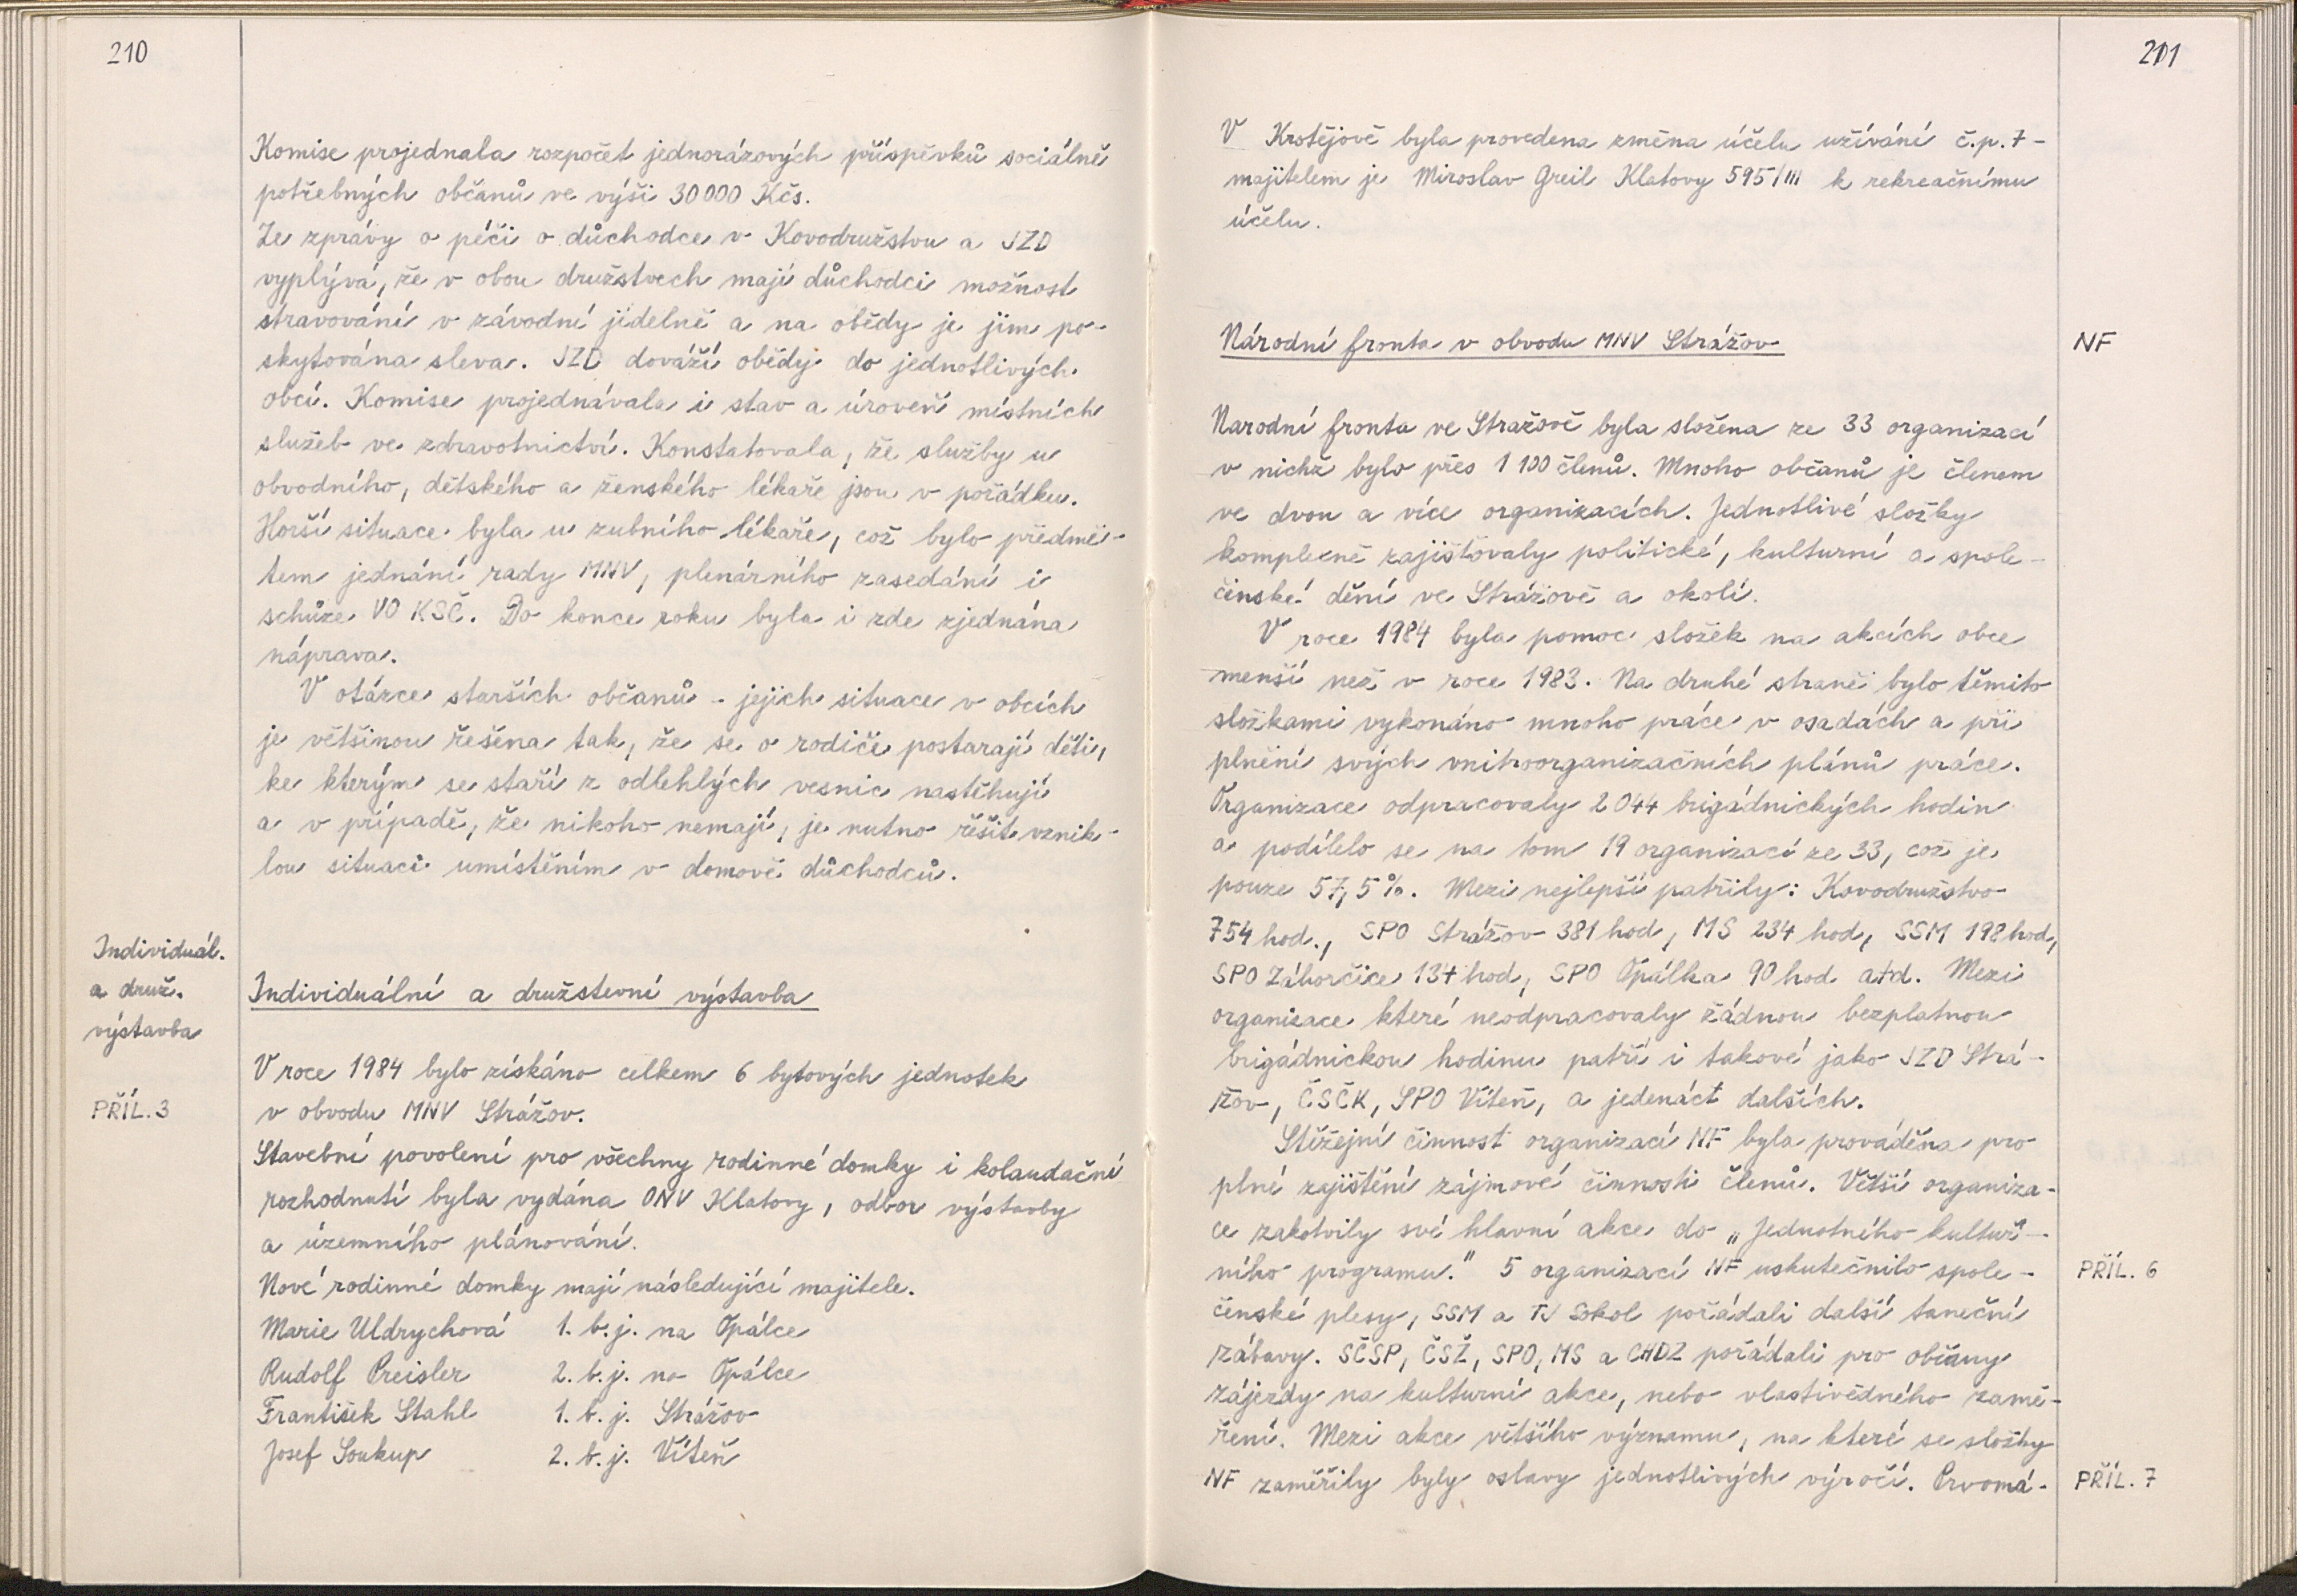 210
Komise projednala rozpočet jednorázových příspěvků sociálně
potřebných občanů ve výši 30 000 Kčs.
Ze zprávy o péči o důchodce v Kovodružstvu a JZD
vyplývá, že v obou družstvech mají důchodci možnost
stravování v závodní jídelně a na obědy je jim po-
skytována sleva. JZD dováží obědy do jednotlivých
obcí. Komise projednávala i stav a úroveň místních
služeb ve zdravotnictví. Konstatovala, že služby u
obvodního, dětského a ženského lékaře jsou v pořádku.
Horší situace byla u zubního lékaře, což bylo předmě-
tem jednání rady MNV, plenárního zasedání i
schůze VO KSČ. Do konce roku byla i zde zjednána
náprava.
V otázce starších občanů - jejich situace v obcích
je většinou řešena tak, že se o rodiče postarají děti,
ke kterým se staří z odlehlých vesnic nastěhují
a v případě, že nikoho nemají, je nutno řěšit vznik-
lou situaci umístěním v domově důchodců.
Individuál.
a druž.
výstavba
Individuální a družstevní výstavba
V roce 1984 bylo získáno celkem 6 bytových jednotek
PŘÍL. 3
v obvodu MNV Strážov.
Stavební povolení pro všechny rodinné domky i kolaudační
rozhodnutí byla vydána ONV Klatovy, odbor výstavby
a územního plánování.
Nové rodinné domky mají následující majitele.
Marie Uldrychová 1. b.j. na Opálce
Rudolf Preisler 2. b.j. na Opálce
František Stahl 1. b.j. Strážov
Josef Soukup 2. b.j. Víteň
211
V Krotějově byla provedena změna účelu užívání č.p. 7 -
majitelem je Miroslav Greil Klatovy 595/III k rekreačnímu
účelu.
Národní fronta v obvodu MNV Strážov
NF
Narodní fronta ve Stražově byla složena ze 33 organizací
v nichž bylo přes 1 100 členů. Mnoho občanů je členem
ve dvou a více organizacích. Jednotlivé složky
komplexně zajišťovaly politické, kulturní a spole-
čenské dění ve Strážově a okolí.
V roce 1984 byla pomoc složek na akcích obce
menší než v roce 1983. Na druhé straně bylo těmito
složkami vykonáno mnoho práce v osadách a při
plnění svých vnitroorganizačních plánů práce.
Organizace odpracovaly 2 044 brigádnických hodin
a podílelo se na tom 19 organizací ze 33, což je
pouze 57,5 %. Mezi nejlepší patřily: Kovodružstvo
754 hod., SPO Strážov 381 hod, MS 234 hod, SSM 198 hod,
SPO Záhorčice 134 hod, SPO Opálka 90 hod atd. Mezi
organizace které neodpracovaly žádnou bezplatnou
brigádnickou hodinu patří i takové jako JZD Strá-
žov, ČSČK, SPO Víteň, a jedenáct dalších.
Stěžejní činnost organizací NF byla prováděna pro
plné zajištění zájmové činnosti členů. Větší organiza-
ce zakotvily své hlavní akce do „Jednotného kultur-
ního programu." 5 organizací NF uskutečnilo spole-
PŘÍL. 6
čenské plesy, SSM a TJ Sokol pořádali další taneční
zábavy. SČSP, ČSŽ, SPO, MS a CHDZ pořádali pro občany
zájezdy na kulturní akce, nebo vlastivědného zamě-
ření. Mezi akce většího významu, na které se složky
NF zaměřily byly oslavy jednotlivých výročí. Prvomá-
PŘÍL. 7